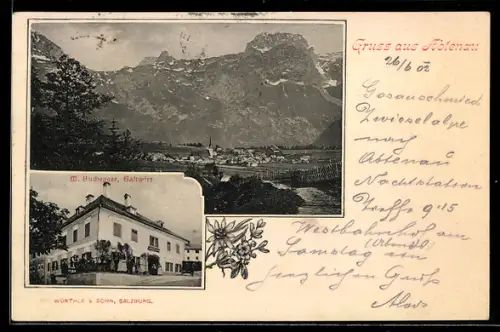 Gruss aus Abtenau
26/6 02
Gosauschmied
Zwieselalpe
nach
Abtenau
Nachtstation
Treffe 9.15
Westbahnhof am
(Abends)
Samstag ein
herzlichen Gruß
Alois
M. Buchegger, Gastwirt
WÜRTHLE & SOHN, SALZBURG.